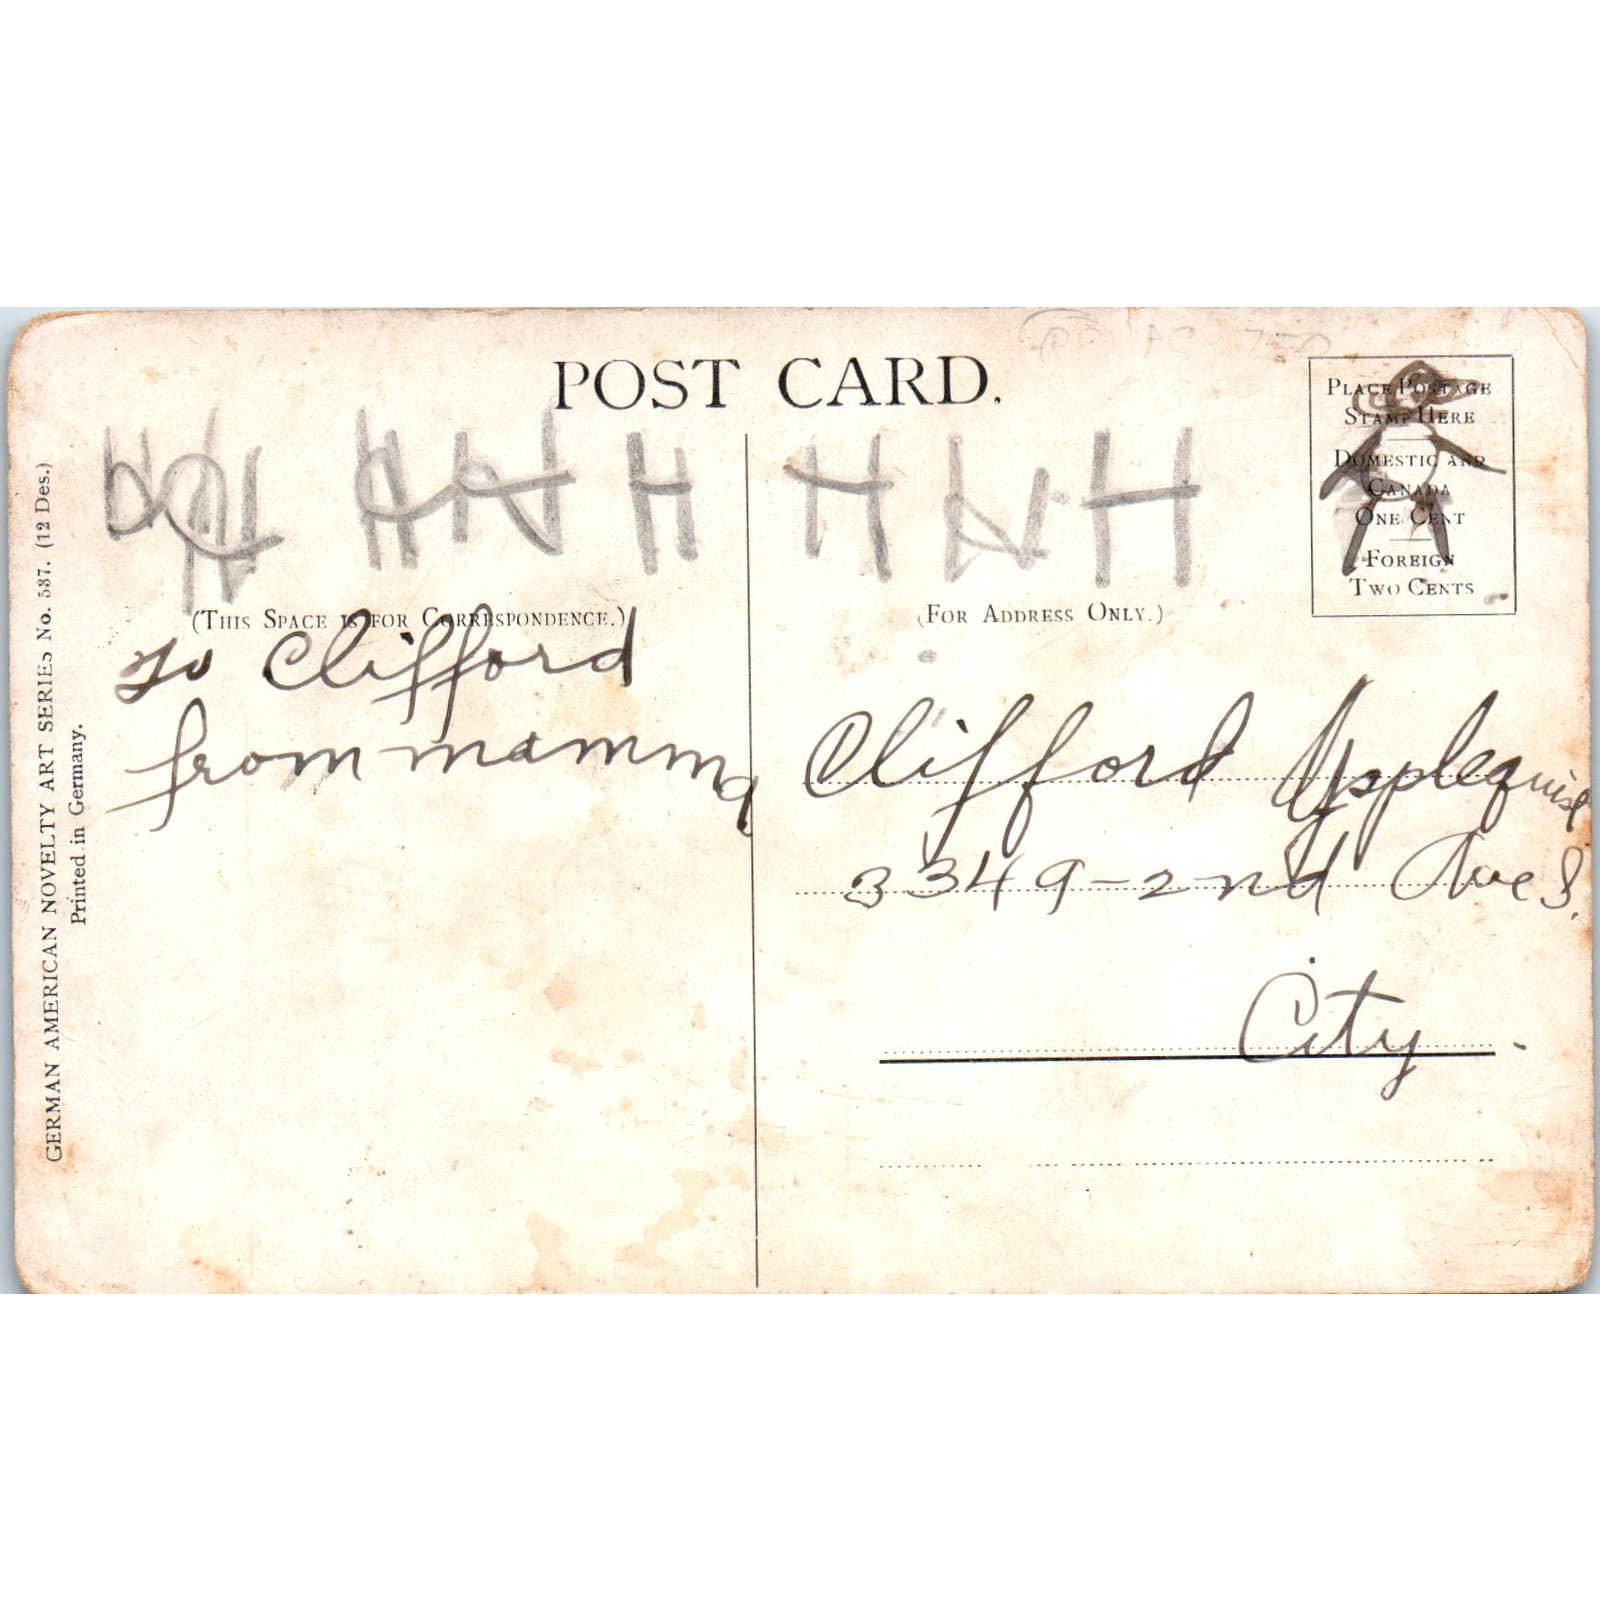 POST CARD.
PLACE POSTAGE
STAMP HERE
DOMESTIC AND
CANADA
ONE CENT
FOREIGN
TWO CENTS
H H H H H H H N H
(THIS SPACE IS FOR CORRESPONDENCE.)
To Clifford
from mamma
(FOR ADDRESS ONLY.)
Clifford Applequist
3349-2nd Ave S.
City.
GERMAN AMERICAN NOVELTY ART SERIES No. 537. (12 Des.)
Printed in Germany.